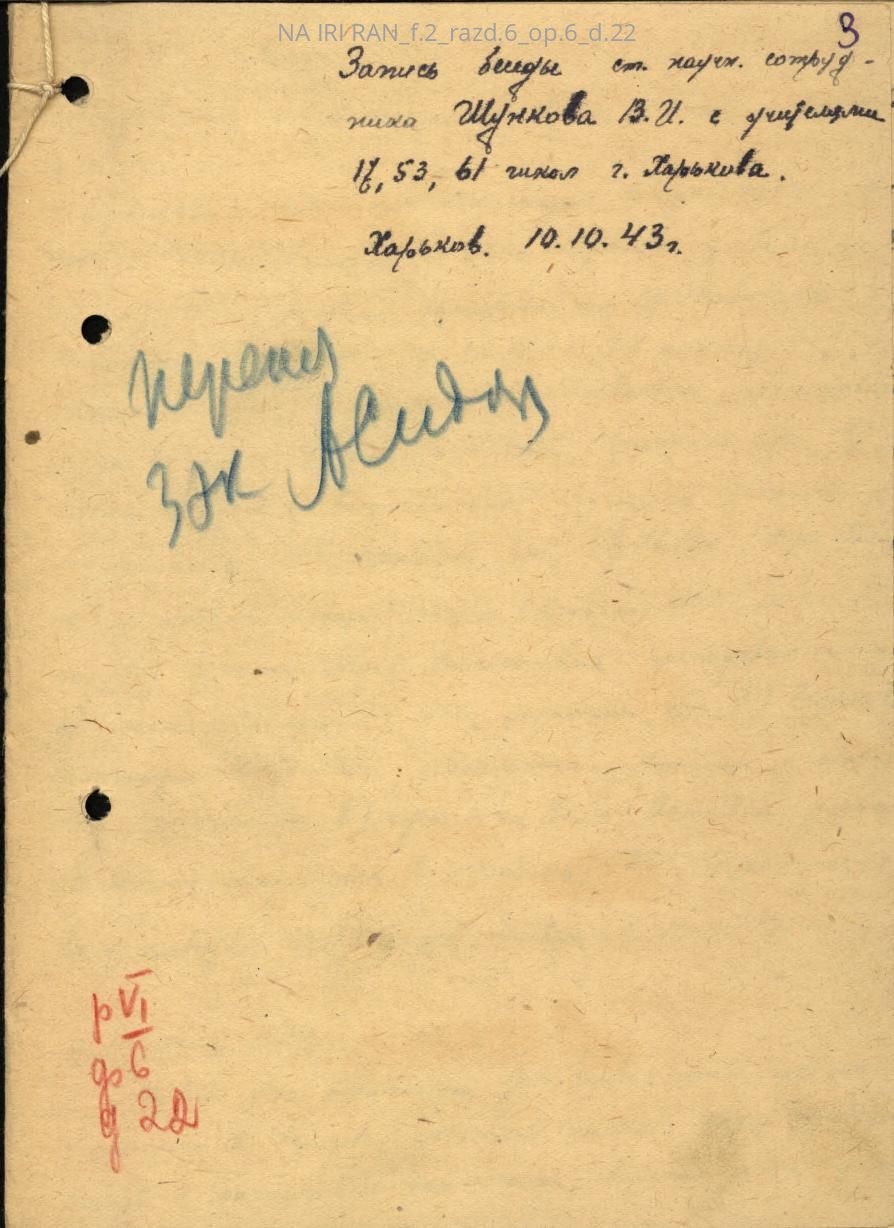 NA IRI RAN_f.2_razd.6_op.6_d.22
3
Запись беседы ст. научн. сотруд-
ника Шункова В.И. с учителями
17, 53, 61 школ г. Харькова.
Харьков. 10.10.43 г.
р VI
6
д 22